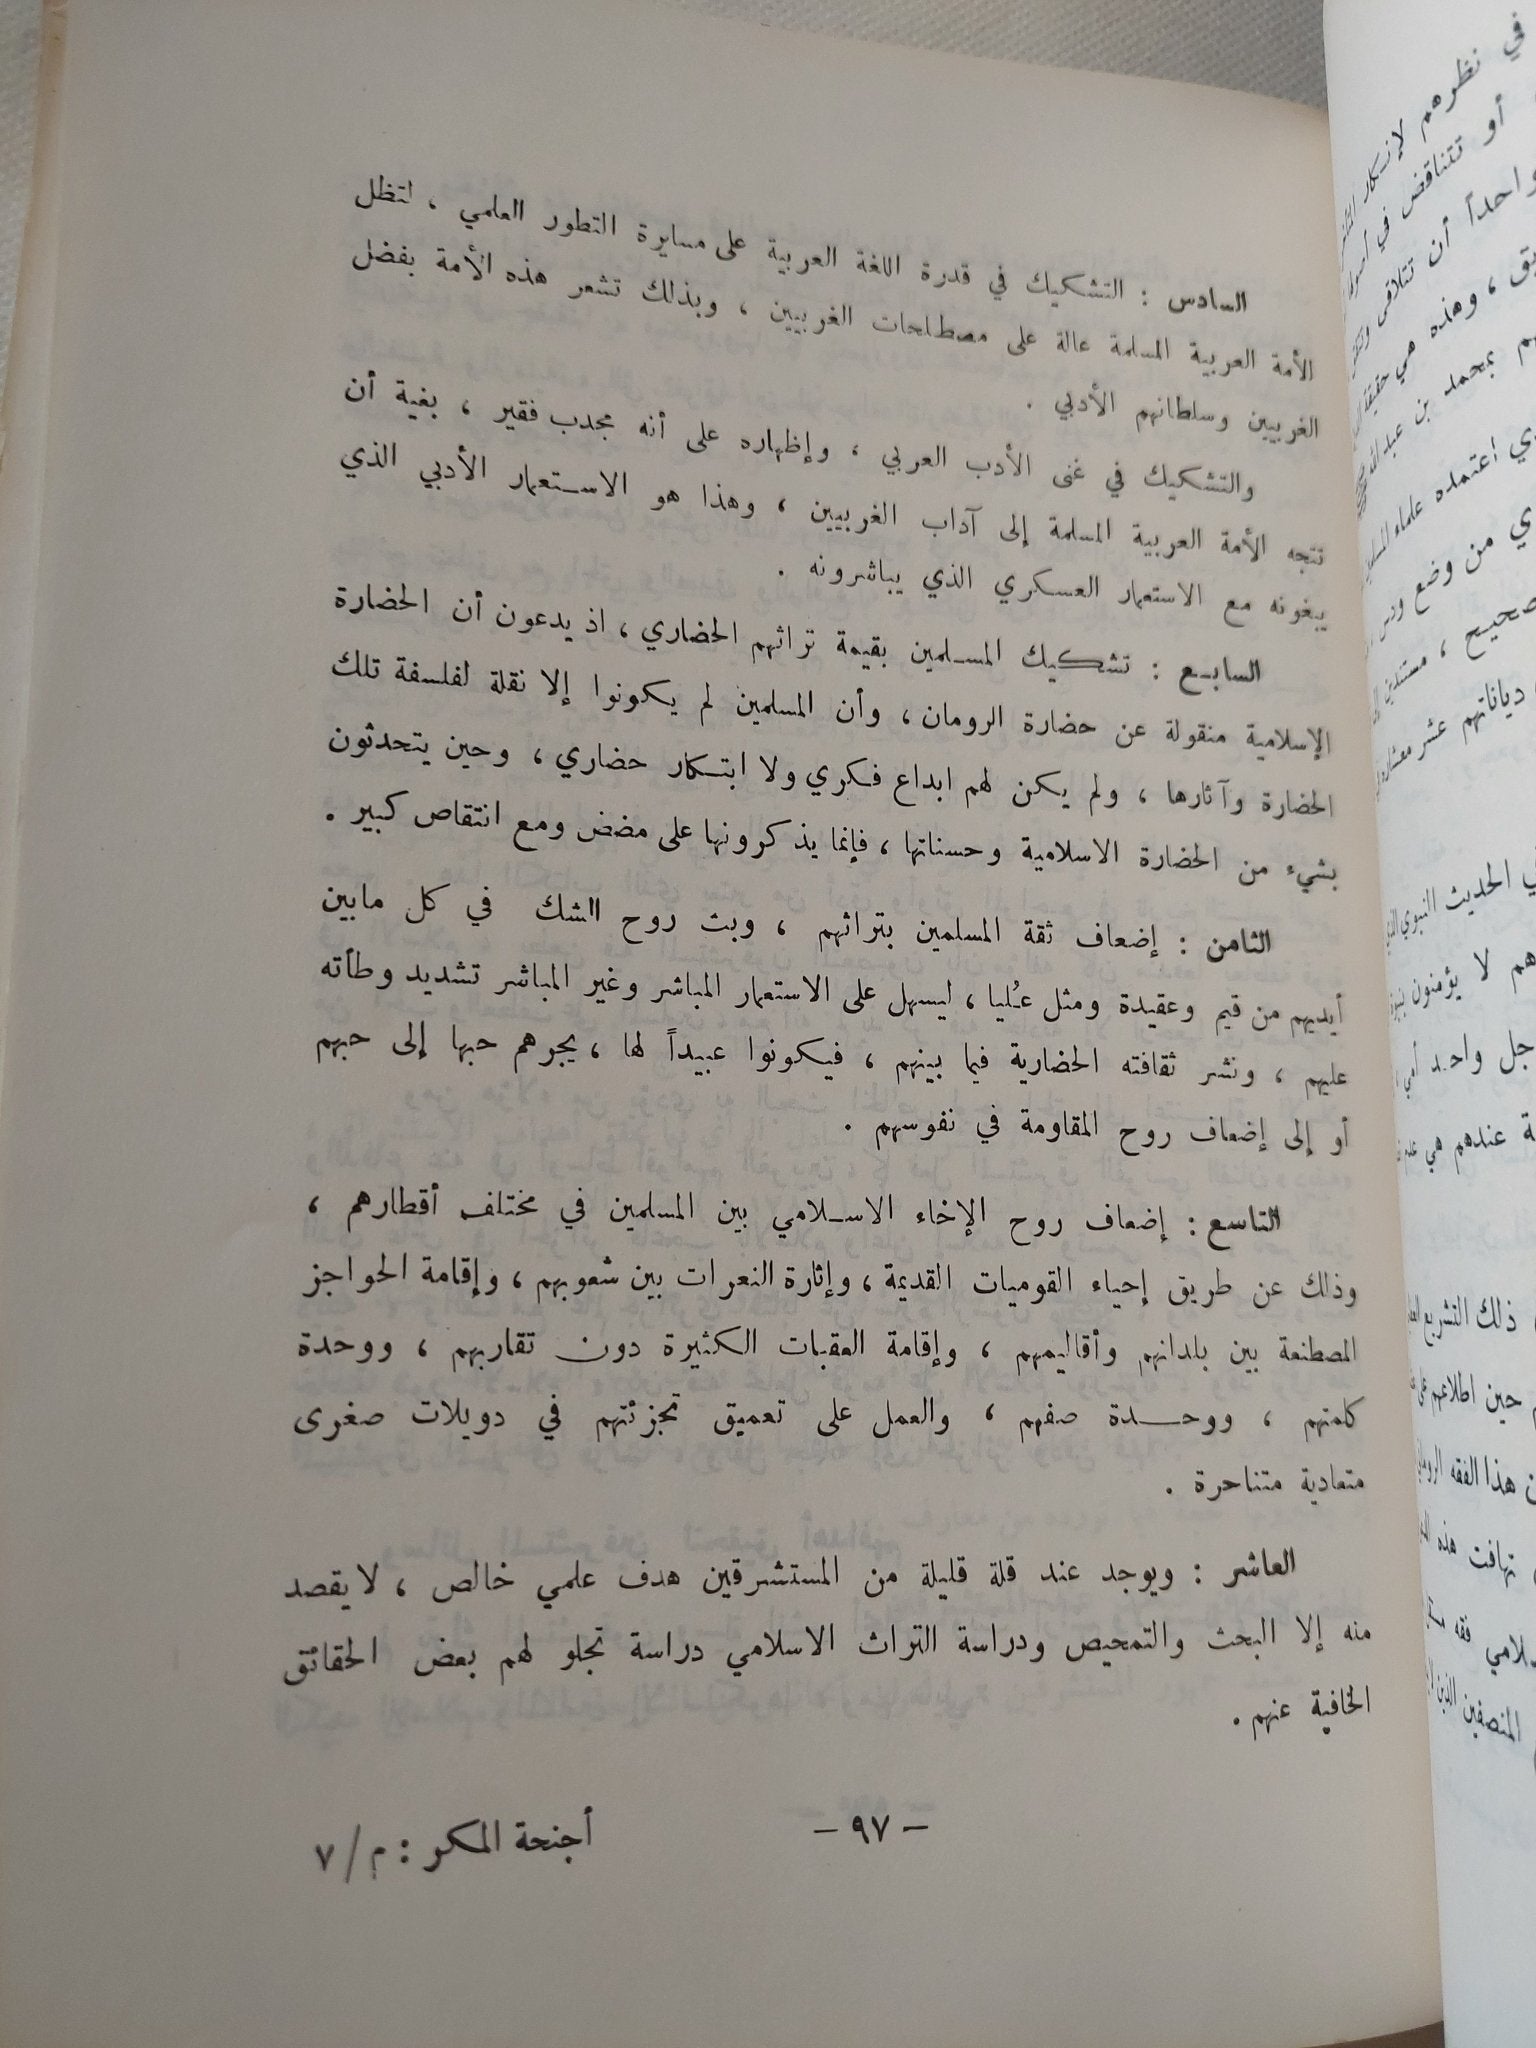 السادس : التشكيك في قدرة اللغة العربية على مسايرة التطور العلمي ، لتظل
الأمة العربية المسلمة عالة على مصطلحات الغربيين ، وبذلك تشعر هذه الأمة بفضل
الغربيين وسلطانهم الأدبي .
والتشكيك في غنى الأدب العربي ، وإظهاره على أنه مجدب فقير ، بغية أن
تتجه الأمة العربية المسلمة إلى آداب الغربيين ، وهذا هو الاستعمار الأدبي الذي
يبغونه مع الاستعمار العسكري الذي يباشرونه .
السابع : تشكيك المسلمين بقيمة تراثهم الحضاري ، اذ يدعون أن الحضارة
الإسلامية منقولة عن حضارة الرومان ، وأن المسلمين لم يكونوا إلا نقلة لفلسفة تلك
الحضارة وآثارها ، ولم يكن لهم ابداع فكري ولا ابتكار حضاري ، وحين يتحدثون
بشيء من الحضارة الاسلامية وحسناتها ، فإنما يذكرونها على مضض ومع انتقاص كبير .
الثامن : إضعاف ثقة المسلمين بتراثهم ، وبث روح الشك في كل مابين
أيديهم من قيم وعقيدة ومثل عُليا ، ليسهل على الاستعمار المباشر وغير المباشر تشديد وطأته
عليهم ، ونشر ثقافته الحضارية فيما بينهم ، فيكونوا عبيداً لها ، يجرهم حبها إلى حبهم
أو إلى إضعاف روح المقاومة في نفوسهم .
التاسع : إضعاف روح الإخاء الاسلامي بين المسلمين في مختلف أقطارهم ،
وذلك عن طريق إحياء القوميات القديمة ، وإثارة النعرات بين شعوبهم ، وإقامة الحواجز
المصطنعة بين بلدانهم وأقاليمهم ، وإقامة العقبات الكثيرة دون تقاربهم ، ووحدة
كلمتهم ، ووحدة صفهم ، والعمل على تعميق تجزئتهم في دويلات صغرى
متعادية متناحرة .
العاشر : ويوجد عند قلة قليلة من المستشرقين هدف علمي خالص ، لا يقصد
منه إلا البحث والتمحيص ودراسة التراث الاسلامي دراسة تجلو لهم بعض الحقائق
الخافية عنهم .
– ٩٧ –
أجنحة المكر : م/٧
في نظرهم لإنكار
أو تتناقض في
واحداً أن تتلاقى
، وهذه هي حقيقة
بمحمد بن عبد الله
اعتمده علماء
من وضع
صحيح ، مستندين
دياناتهم عشر
الحديث النبوي
هم لا يؤمنون
واحد أمي
عندهم هي
ذلك التشريع
حين اطلاعهم
هذا الفقه
تهافت هذه
فقه
المنصفين الذين